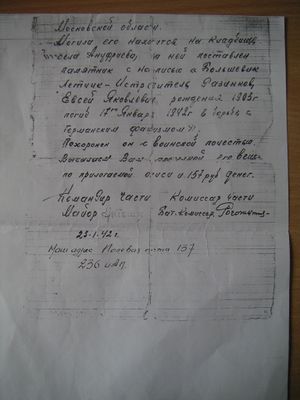 Московской области.
Могила его находится на кладбище
села Ануфриево, на ней поставлен
памятник с надписью "Большевик
Летчик-Истребитель
Евсей Яковлевич рождения 1903г
погиб 17го Января 1942г в борьбе с
Германским фашизмом".
Похоронен он с воинской почестью.
Высылаем Вам его вещи
по прилагаемой описи и 157 руб денег.
Командир Части Комиссар части
Майор Бат. комиссар
23-1-42г.
Наш адрес Полевая почта 137
236 иАП.